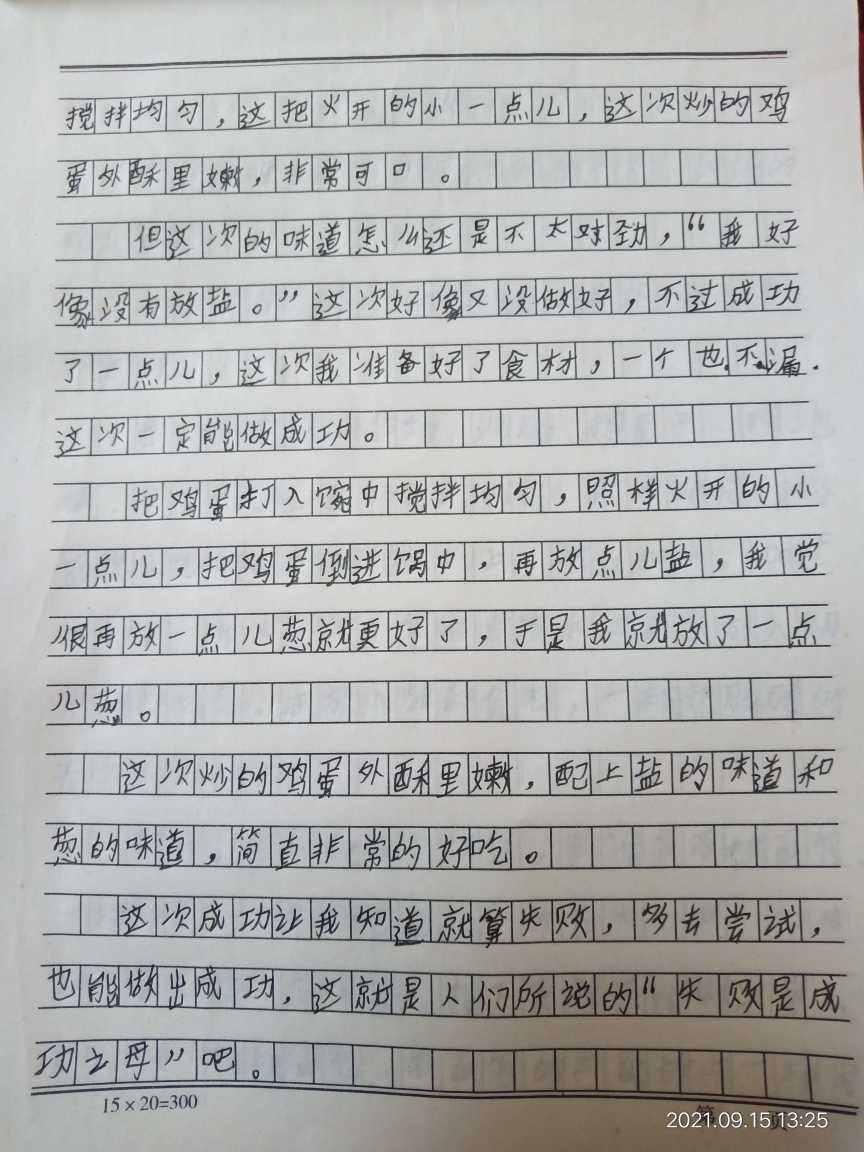 搅拌均匀，这把火开的小一点儿，这次炒的鸡
蛋外酥里嫩，非常可口。
但这次的味道怎么还是不太对劲，“我好
像没有放盐。”这次好像又没做好，不过成功
了一点儿，这次我准备好了食材，一个也不漏.
这次一定能做成功。
把鸡蛋打入碗中搅拌均匀，照样火开的小
一点儿，把鸡蛋倒进锅中，再放点儿盐，我觉
很再放一点儿葱就更好了，于是我就放了一点
儿葱。
这次炒的鸡蛋外酥里嫩，配上盐的味道和
葱的味道，简直非常的好吃。
这次成功让我知道就算失败，多去尝试，
也能做出成功，这就是人们所说的“失败是成
功之母”吧。
15×20=300
第 页
2021.09.15 13:25